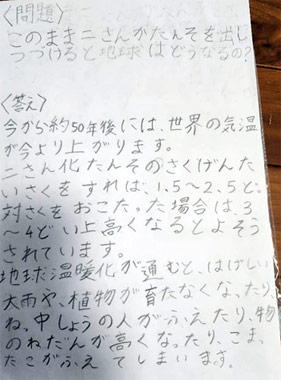 〈問題〉
このままニさんかたんそを出し
つづけると地球はどうなるの?
〈答え〉
今から約50年後には、世界の気温
が今より上がります。
ニさん化たんそのさくげんた
いさくをすれば、1.5〜2.5ど。
対さくをおこたった場合は、3
〜4どい上高くなるとよそう
されています。
地球温暖化が進むと、はげしい
大雨や、植物が育たなくなったり、
ね,中しょうの人がふえたり、物
のねだんが高くなったり、こま,
たことがふえてしまいます。